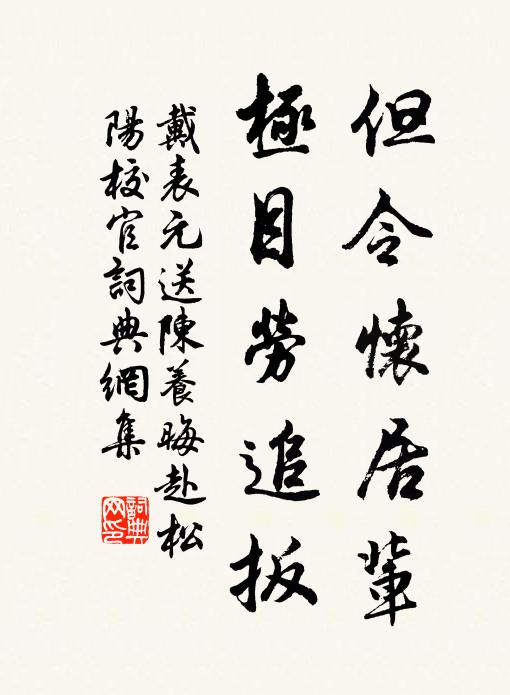 但令懷居輩
極目勞追扳
戴表元送陳養晦赴松
陽校官詞典網集
詞典
网印